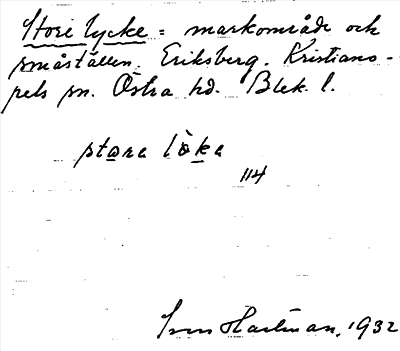 Store lycke = markområde och
småställen. Eriksberg. Kristiano-
pels sn. Östra hd. Blek. l.
stora löka
114
Sven Hartman, 1932